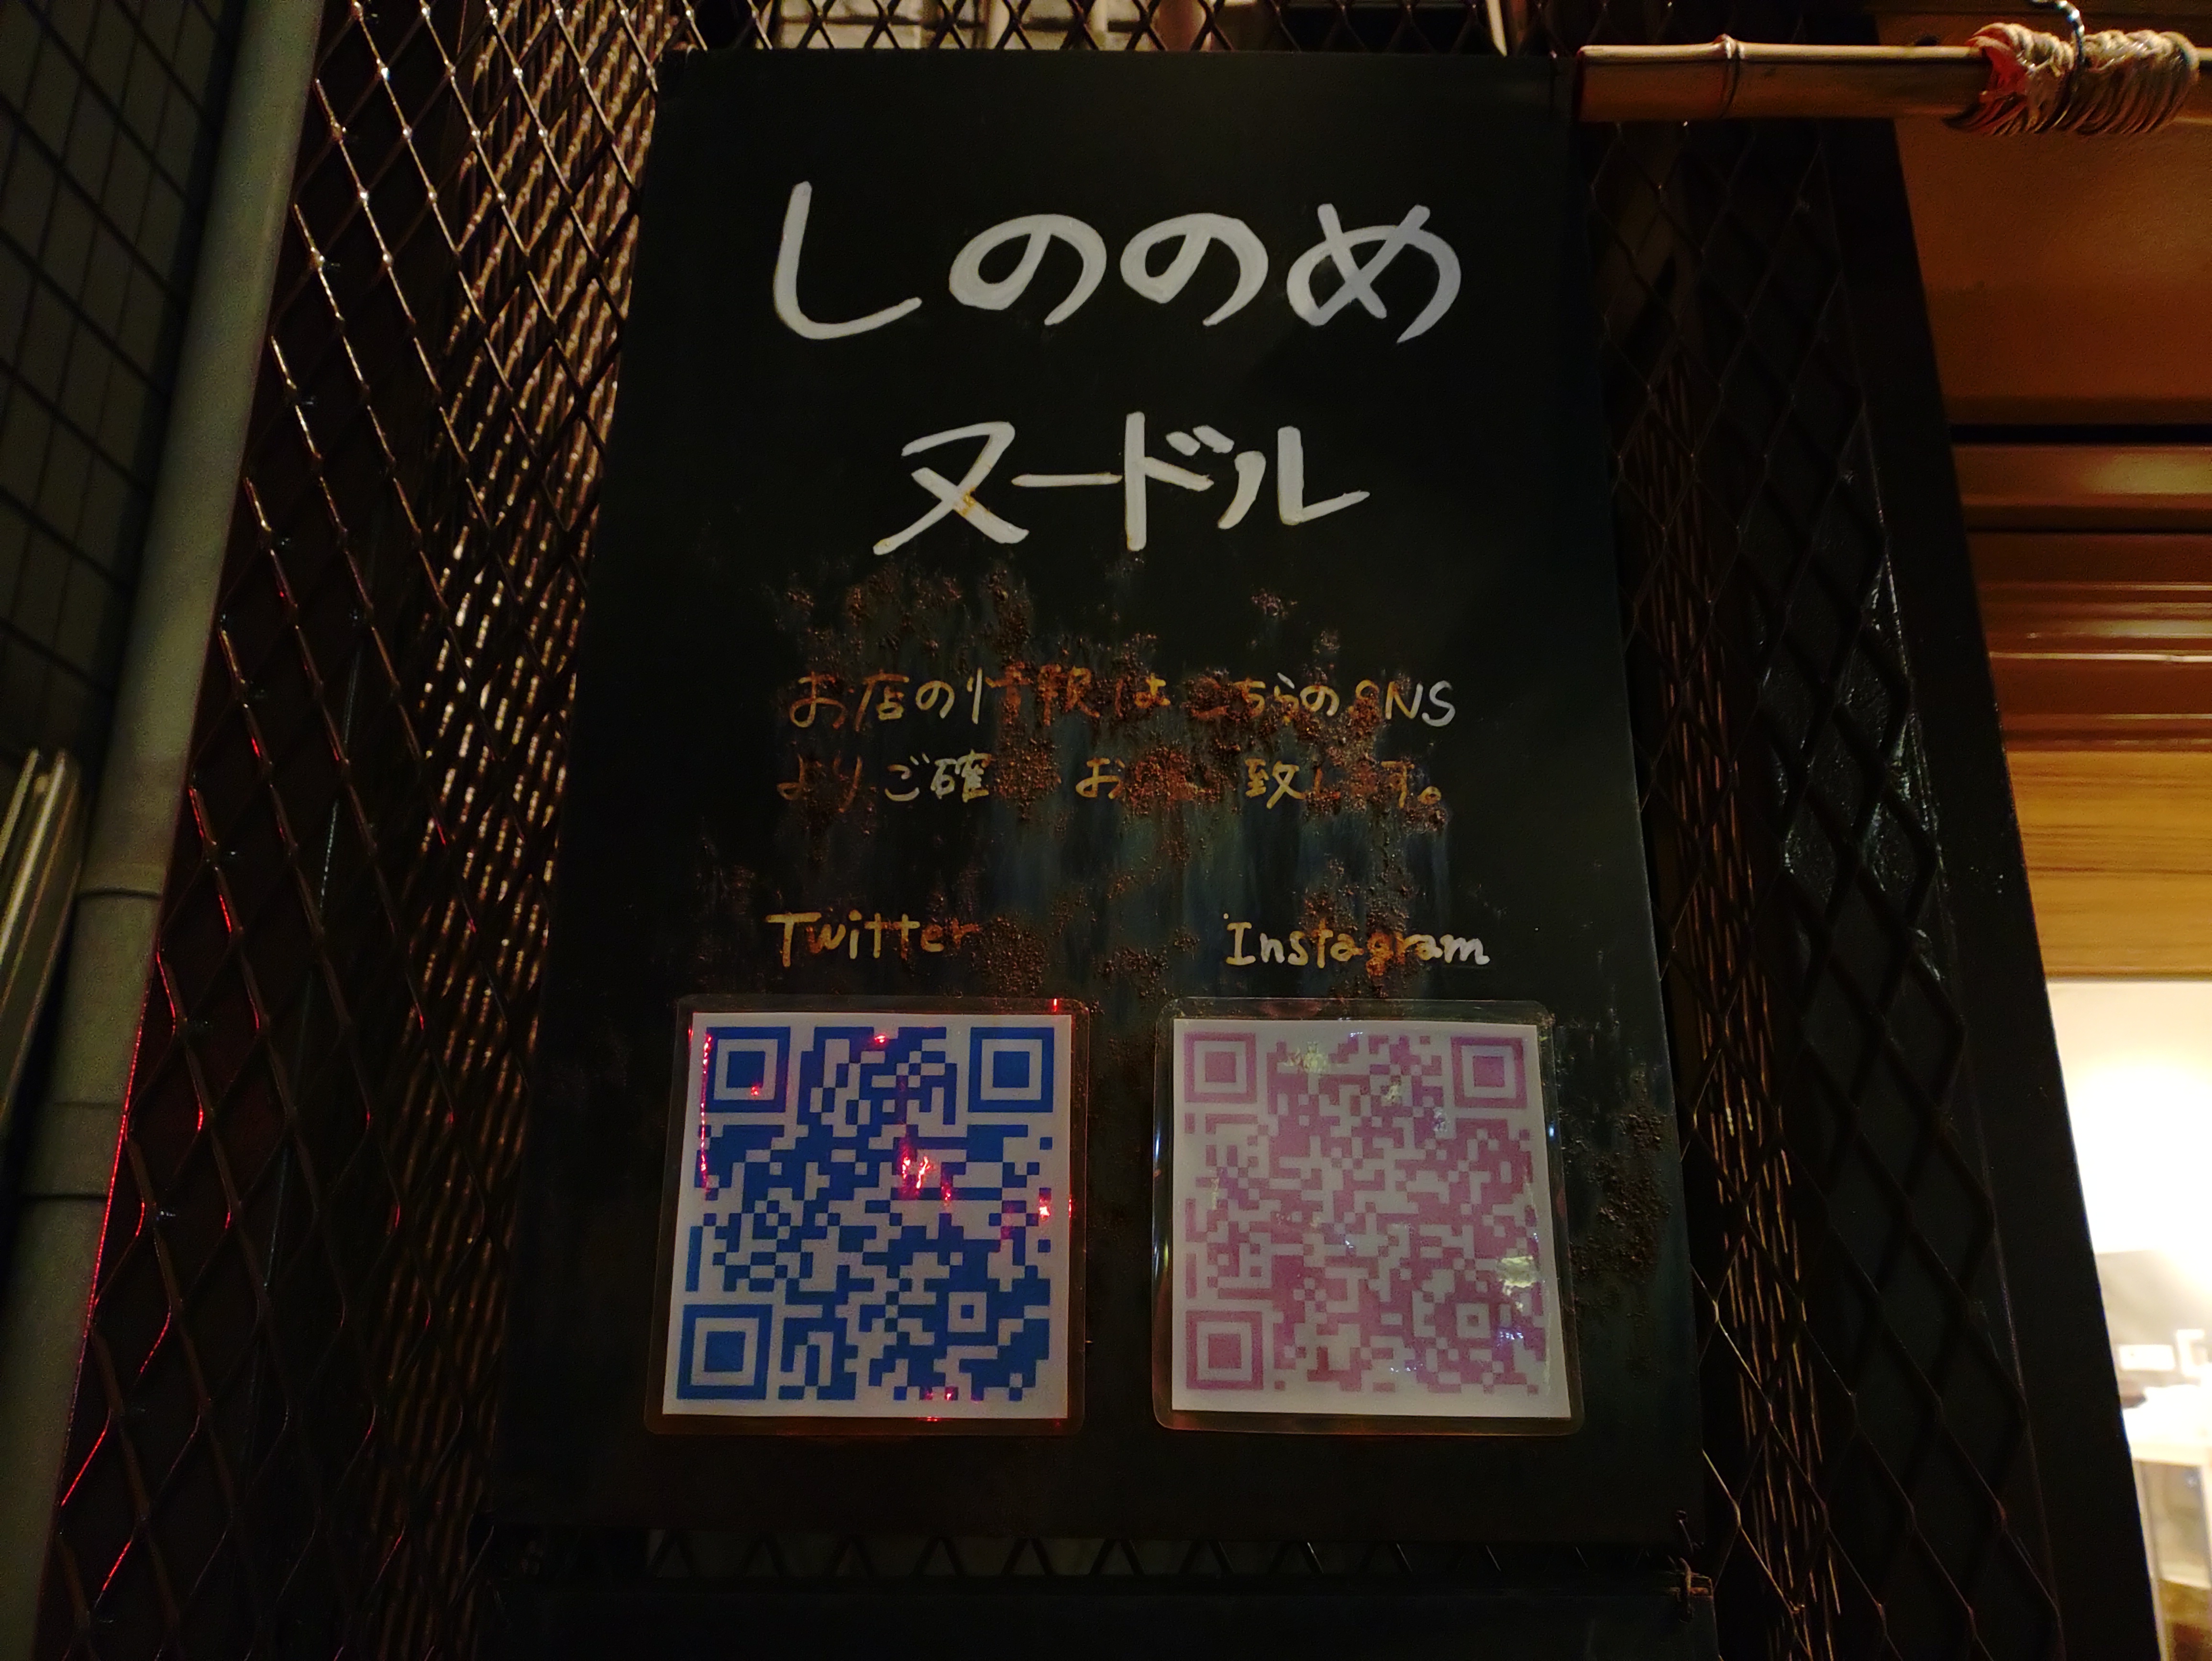 しののめ
ヌードル
お店の情報はこちらのSNS
よりご確 お 致します。
Twitter
Instagram